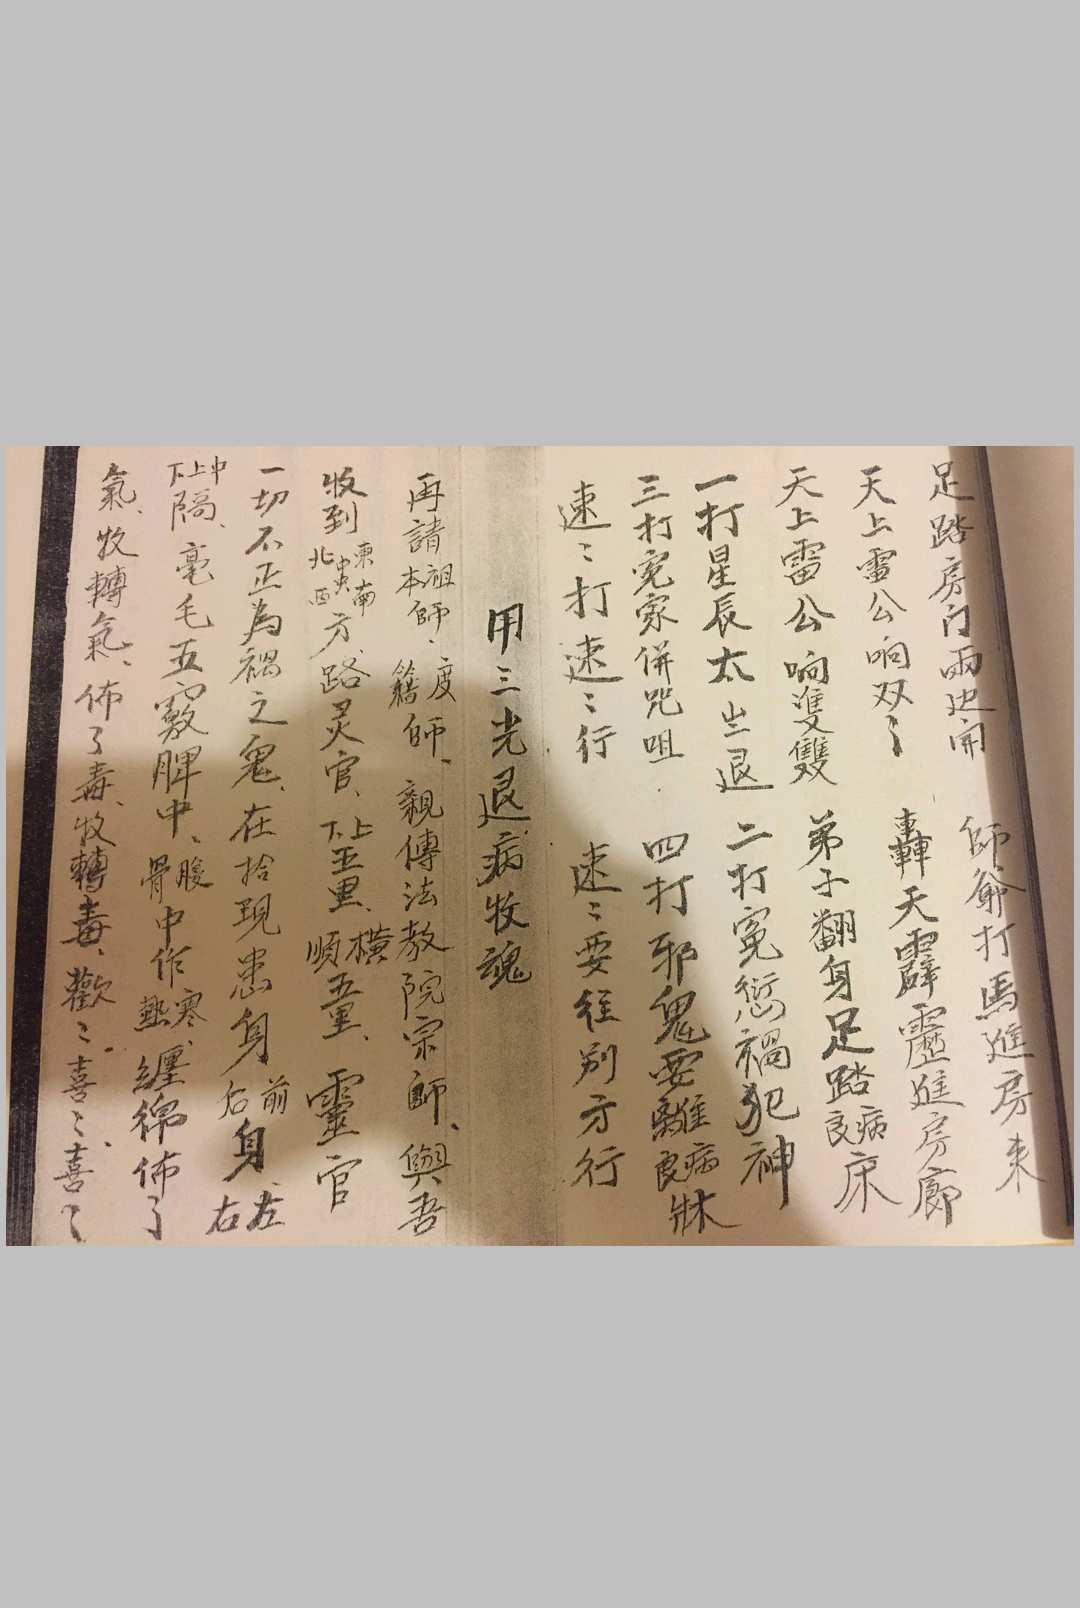 足踏房门兩边開　師爺打馬進房来
天上雷公响双〻　轟天霹靂進房廊
天上雷公响雙雙　弟子翻身足踏病良床
一打星辰太歲退　二打冤愆禍犯神
三打冤家併咒咀　四打邪鬼要離病良牀
速〻打速〻行　速〻要往别方行
用三光退病收魂
再請祖本師、度籙師、親傳法教院宗師、與吾
收到東南中央北西方路灵官、上下五里、橫順五里、靈官
一切不正為禍之鬼、在拾現患身前后身、左右
中上下隔、毫毛五竅脾中、腹骨中作寒熱、纏綿佈了
氣、收轉氣、佈了毒、收轉毒、歡〻喜〻、喜〻